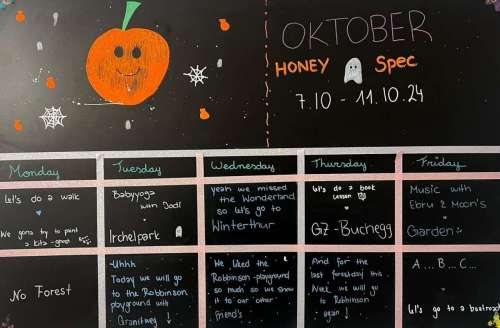 OKTOBER
HONEY Spec
7.10 - 11.10.24
Monday
Tuesday
Wednesday
Thursday
Friday
Let's do a walk
We gona try to paint
a kita-ghost
Babyyoga
with Jodi
Irchelpark
yeah we missed
the Wonderland
so let's go to
Winterthur
Let's do a book
lesson
GZ-Buchegg
Music with
Ebru & Moon's
Garden
No Forest
Uhhh
Today we will go
to the Robbinson
playground with
We liked the
Robbinson-playground
so much so we show
it to our other
friend's
And for the
last forestday this
we will go
to Robinson
again!
A... B... C...
let's go to a